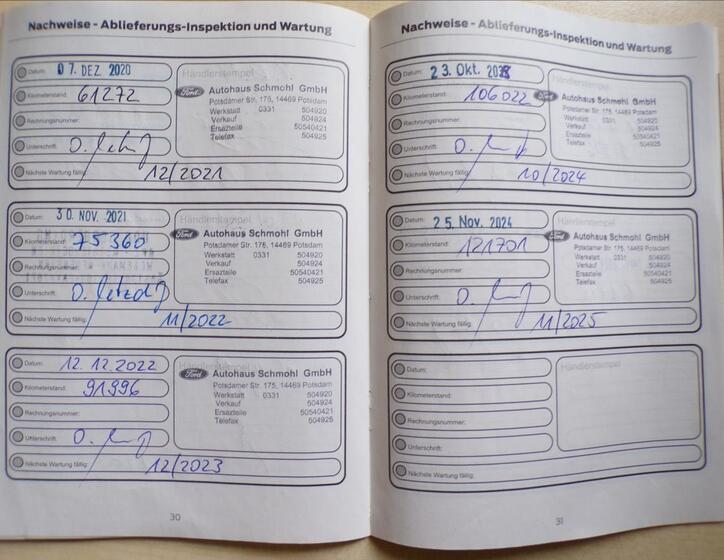 Nachweise - Ablieferungs-Inspektion und Wartung
Datum: 07. DEZ 2020
Händlerstempel
Kilometerstand: 61272
Ford Autohaus Schmohl GmbH
Potsdamer Str. 175, 14469 Potsdam
Werkstatt 0331 504920
Verkauf 504924
Ersatzteile 50540421
Telefax 504925
Rechnungsnummer:
Unterschrift:
Nächste Wartung fällig: 12/2021
Datum: 30. NOV. 2021
Händlerstempel
Kilometerstand: 75360
Ford Autohaus Schmohl GmbH
Potsdamer Str. 175, 14469 Potsdam
Werkstatt 0331 504920
Verkauf 504924
Ersatzteile 50540421
Telefax 504925
Rechnungsnummer:
Unterschrift:
Nächste Wartung fällig: 11/2022
Datum: 12.12.2022
Händlerstempel
Kilometerstand: 91996
Ford Autohaus Schmohl GmbH
Potsdamer Str. 175, 14469 Potsdam
Werkstatt 0331 504920
Verkauf 504924
Ersatzteile 50540421
Telefax 504925
Rechnungsnummer:
Unterschrift:
Nächste Wartung fällig: 12/2023
30
Nachweise - Ablieferungs-Inspektion und Wartung
Datum: 23. Okt.
Händlerstempel
Kilometerstand: 106022
Ford Autohaus Schmohl GmbH
Potsdamer Str. 175, 14469 Potsdam
Werkstatt 0331 504920
Verkauf 504924
Ersatzteile 50540421
Telefax 504925
Rechnungsnummer:
Unterschrift:
Nächste Wartung fällig: 10/2024
Datum: 25. Nov. 2024
Händlerstempel
Kilometerstand: 121701
Ford Autohaus Schmohl GmbH
Potsdamer Str. 175, 14469 Potsdam
Werkstatt 0331 504920
Verkauf 504924
Ersatzteile 50540421
Telefax 504925
Rechnungsnummer:
Unterschrift:
Nächste Wartung fällig: 11/2025
Datum:
Händlerstempel
Kilometerstand:
Rechnungsnummer:
Unterschrift:
Nächste Wartung fällig:
31